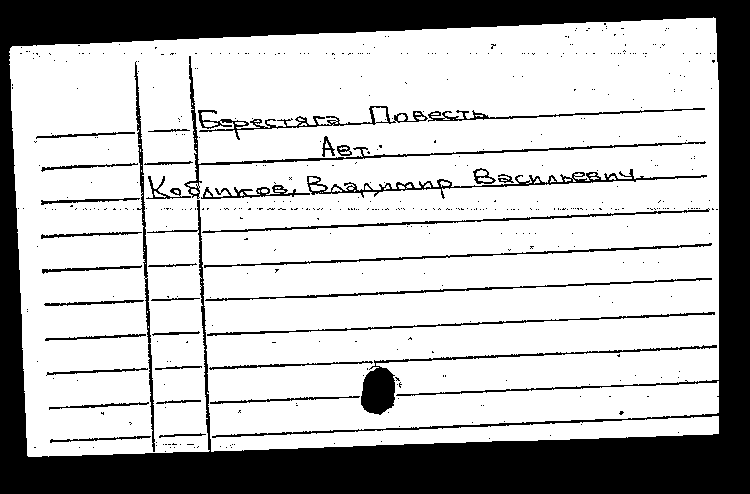 Берестяга Повесть
Авт.:
Кобликов, Владимир Васильевич.